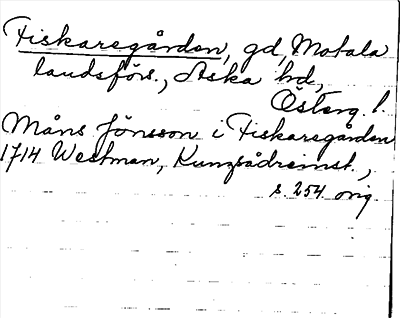 Fiskaregården, gd, Motala
landsförs., Aska hd,
Österg. l.
Måns Jönsson i Fiskaregården
1714 Westman, Kungsådreinst.,
s. 254 orig.